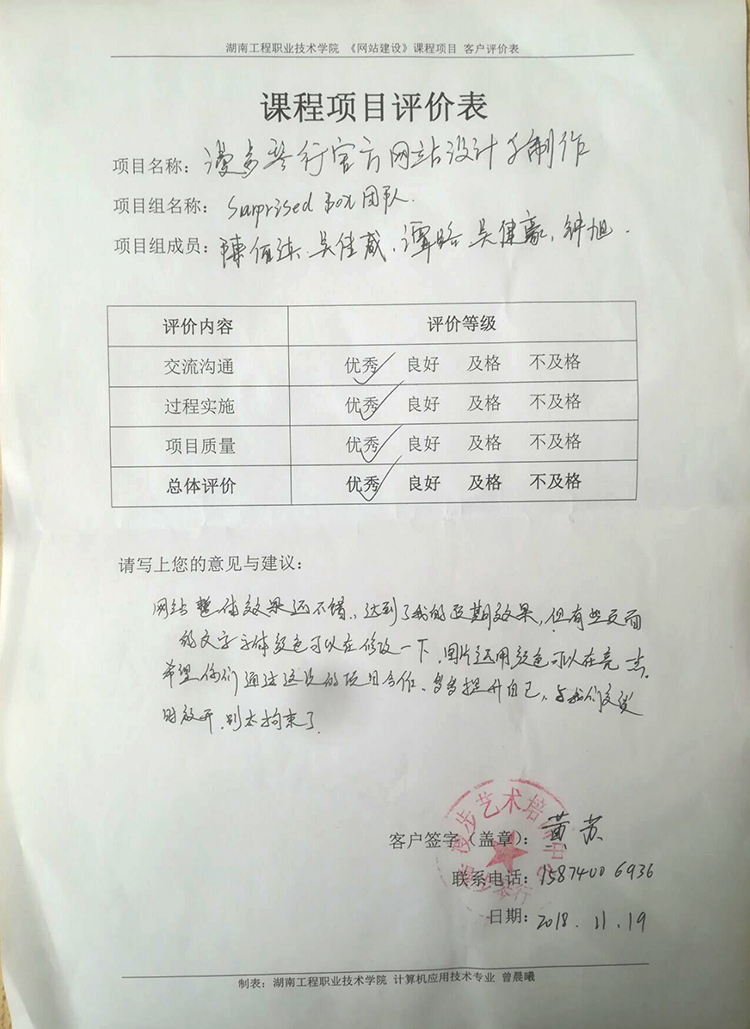 湖南工程职业技术学院 《网站建设》课程项目 客户评价表
课程项目评价表
项目名称：漫步琴行官方网站设计与制作
项目组名称：Surprised Box团队.
项目组成员：陳佰祺、吴佳葳、谭路 吴健豪、钟旭.
评价内容 评价等级
交流沟通 优秀 良好 及格 不及格
过程实施 优秀 良好 及格 不及格
项目质量 优秀 良好 及格 不及格
总体评价 优秀 良好 及格 不及格
请写上您的意见与建议：
网站整体效果还不错，达到了我的预期效果，但有些页面
的文字字体颜色可以在修改一下，图片运用颜色可以在亮一点。
希望你们通过这次的项目合作，多多提升自己，与我们交谈
时放开，别太拘束了.
漫步艺术培训中心
漫步琴行
客户签字（盖章）：黄苏
联系电话：15874006936
日期：2018.11.19
制表：湖南工程职业技术学院 计算机应用技术专业 曾晨曦